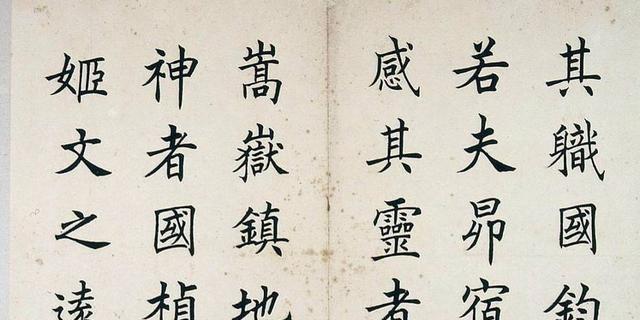 其職國鈞
若夫昴宿
感其靈者
嵩嶽鎮地
神者國楨
姬文之遠